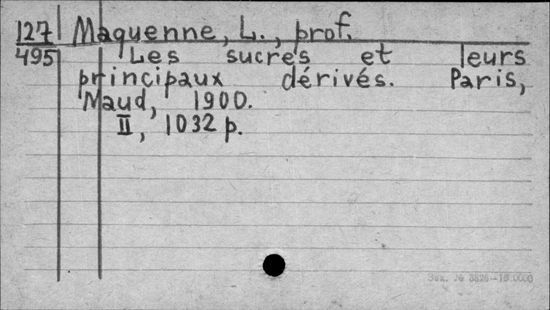 127 Maquenne, L., prof.
495 Les sucres et leurs
principaux dérivés. Paris,
Naud, 1900.
II, 1032 p.